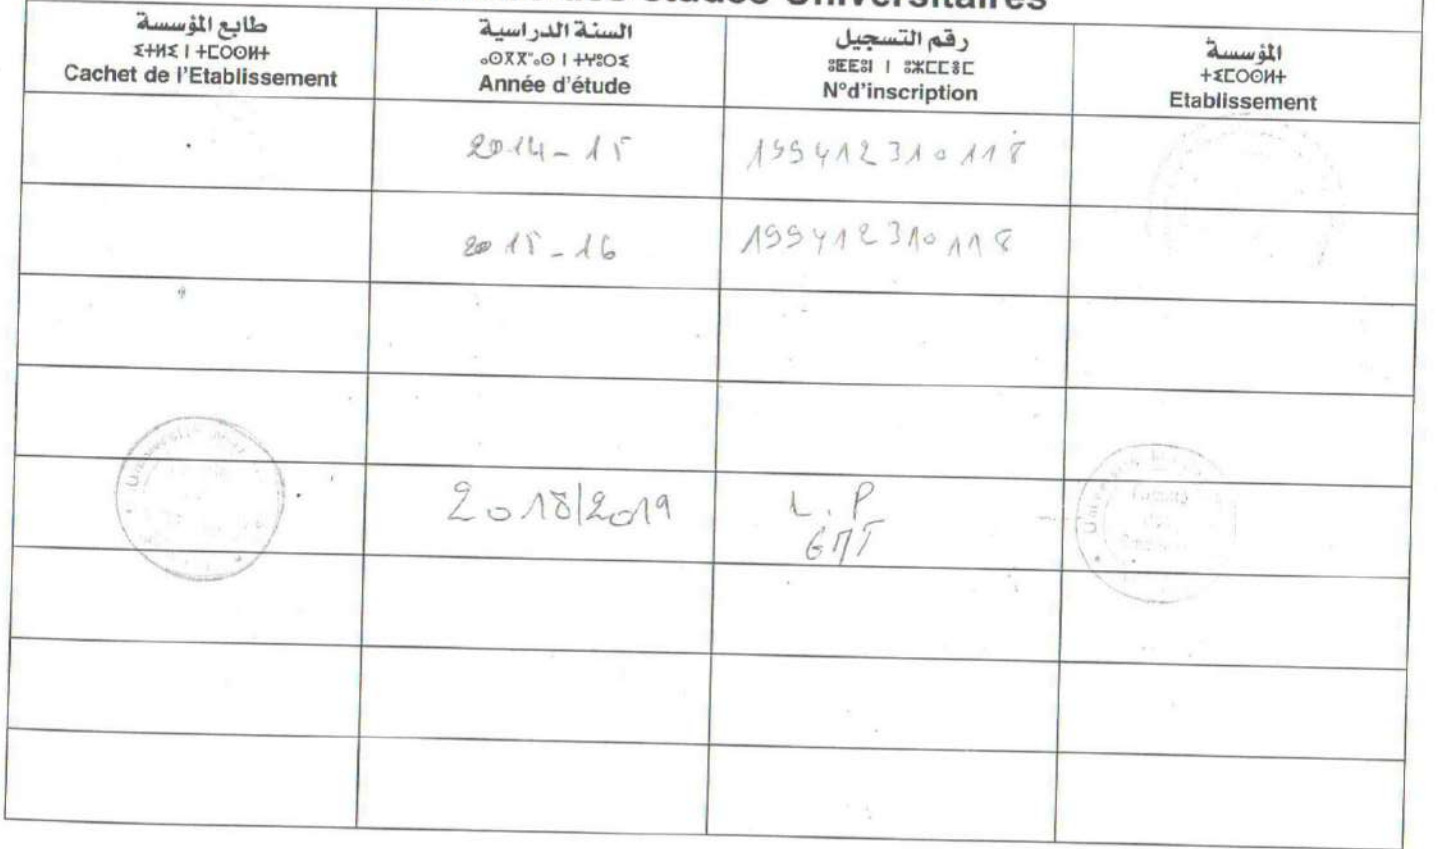 des études Universitaires
طابع المؤسسة
ⵉⵜⵍⵉ ⵏ ⵜⵎⵙⵙⵍⵜ
Cachet de l'Etablissement
السنة الدراسية
ⴰⵙⴳⴳⵯⴰⵙ ⵏ ⵜⵖⵓⵔⵉ
Année d'étude
رقم التسجيل
N°d'inscription
المؤسسة
ⵜⵉⵎⵙⵙⵍⵜ
Etablissement
2014-15
199412310118
2015-16
199412310118
2018/2019
L.P
GMT